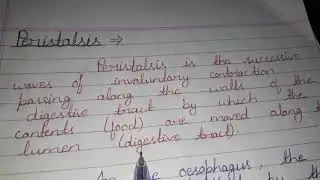 Peristalsis ⇒
Peristalsis is the successive
waves of involuntary contraction
passing along the walls of the
digestive tract by which the
contents (food) are moved along
lumen (digestive tract).
oesophagus, the